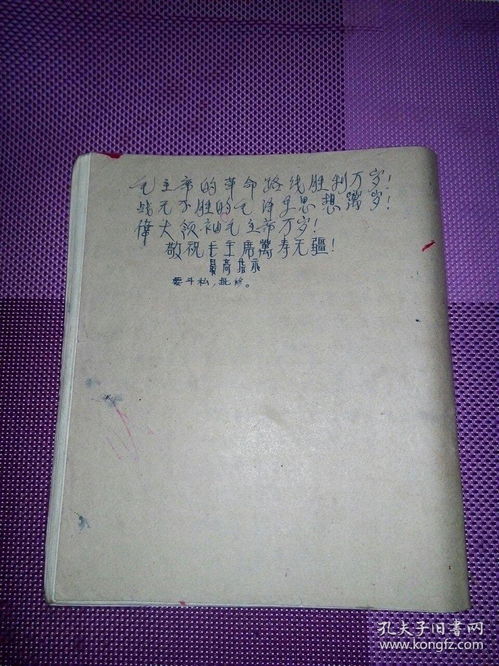 毛主席的革命路线胜利万岁!
战无不胜的毛泽东思想万岁!
偉大领袖毛主席万岁!
敬祝毛主席萬寿无疆!
最高指示
要斗私,批修。
孔夫子旧书网
www.kongfz.com